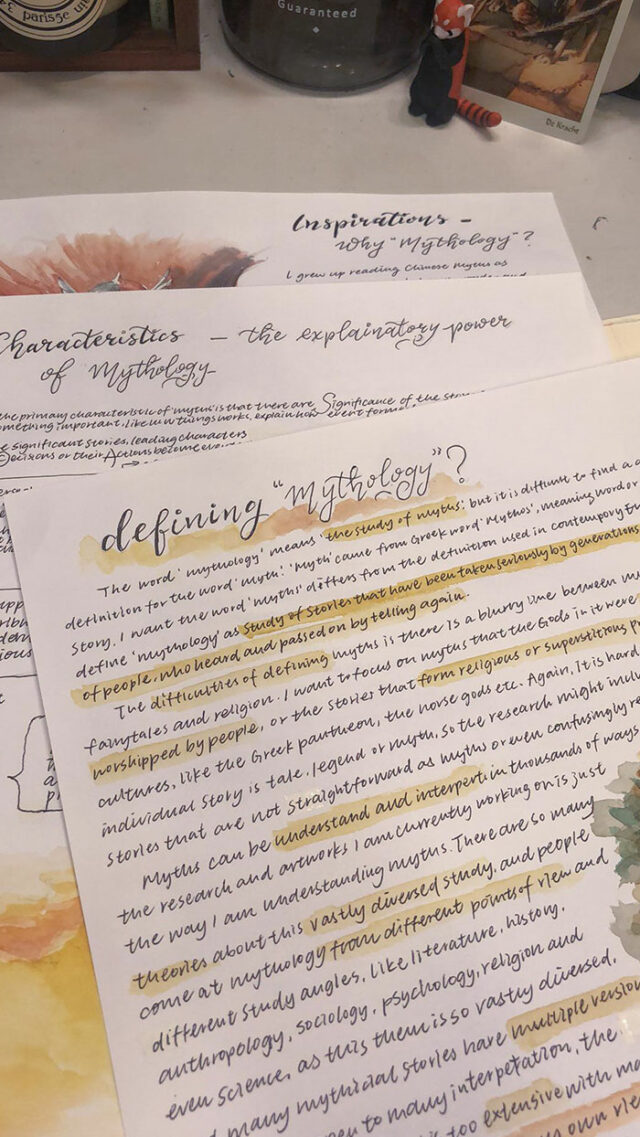 Guaranteed
De Kracht
Inspirations -
Why "Mythology"?
I grew up reading Chinese Myths as
Characteristics - the explainatory power
of Mythology
the primary characteristic of myths is that there are Significance of the
something important, like how things work, explain how event
significant stories, leading characters
Decisions or their Actions become
defining "Mythology"?
The word 'mythology' means 'the study of myths', but it is difficult to find a
definition for the word 'myth'. 'Myth' came from Greek word 'Mythos', meaning word or
story. I want the word 'myths' differs from the definition used in contempotary
define 'mythology' as study of stories that have been taken seriously by generations
of people, who heard and passed on by telling again.
The difficulties of defining myths is there is a blurry line between
fairytales and religion. I want to focus on myths that the Gods in it were
worshipped by people, or the stories that form religious or superstitious
cultures, like the Greek pantheon, the norse gods etc. Again, it is hard
individual story is tale, legend or myth, so the research might
stories that are not straightforward as myths or even confusingly
Myths can be understand and interpert in thousands of ways
the research and artworks I am currently working on is just
the way I am understanding myths. There are so many
theories about this vastly diversed study, and people
come at mythology from different points of view and
different study angles, like literature, history,
anthropology, sociology, psychology, religion and
even science, as this them is so vastly diversed,
many mythical stories have multiple
to many interpetation, the
too extensive with
own